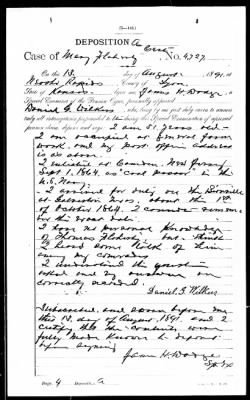 (3—446.)
DEPOSITION A
Case of Mary Flaherty Cert. No. 4727.
On this 13, day of August, 1891, at
Neosho Rapids County of Lyon
State of Kansas, before me, James H. Dodge, a
Special Examiner of the Pension Office, personally appeared
Daniel G. Wilkins who, being by me first duly sworn to answer
truly all interrogatories propounded to him during this Special Examination of aforesaid
pension claim, deposes and says: I am 51 years old
I am
work, and my post office address
is as above.
I enlisted at Camden, New Jersey
Sept. 1. 1864. as "coal passer" in the
U.S. Navy
I arrived for duty on the Bienville
at Galveston Texas, about the 1st
of October 1864. I cannot
the exact date.
I have no personal knowledge
of Thomas Flaherty, but think
I have heard him told of
by my comrades
I understand the questions
asked and my answers are
correctly recorded.
Daniel G. Wilkins
Subscribed and sworn before me
this 13, day of August, 1891. and I
certify that the contents were
fully made known to deponent
before signing
James H. Dodge
Sp. Ex
Page 4 Deposition A